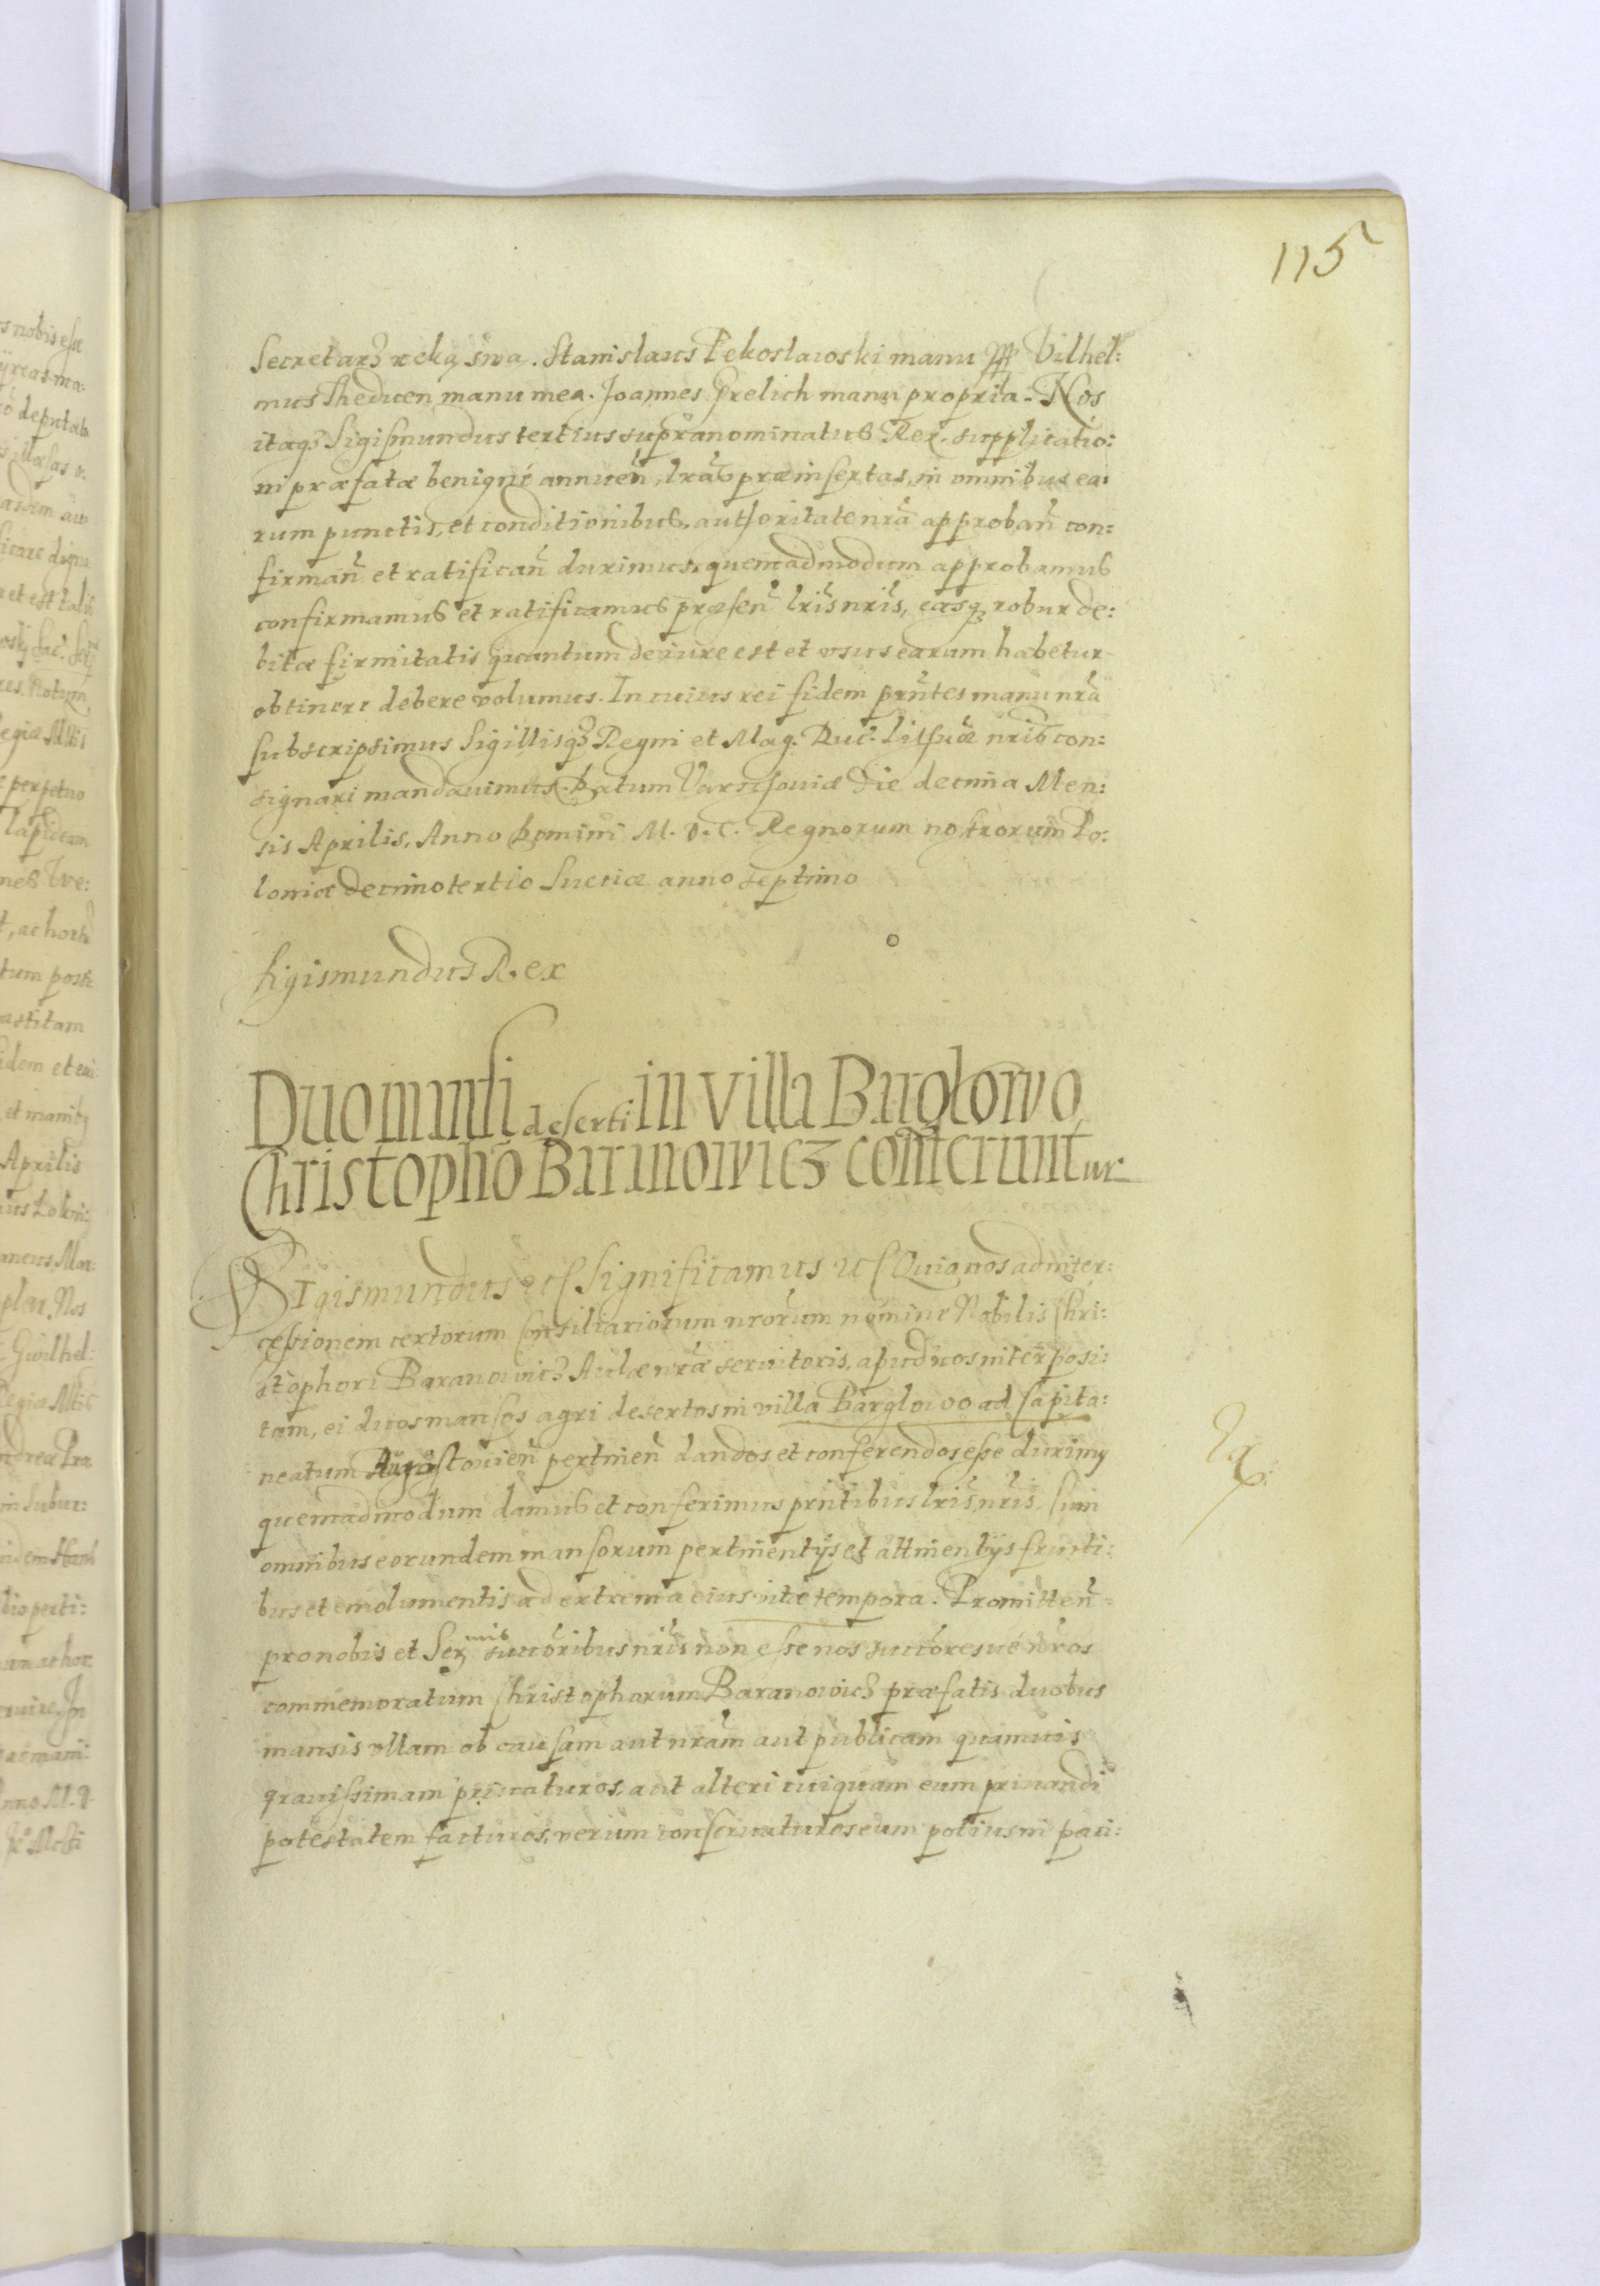 115
Secretarz ręką swą. Stanislaus Pekoslawski manu ppp Vilhel:
mus Theducen manu mea. Joannes Grelich manu propria. Nos
itaq3 Sigismundus tertius supranominatus Rex supplicatio:
ni præfatæ benigné annueñ, lrãs præinsertas, in omnibus ea:
rum punctis, et conditionibus, authoritate nrã approbañ con:
firmañ et ratificañ duximus, quemadmodum approbamus
confirmamus et ratificamus præseñ lris nris, easq3 robur de:
bitæ firmitatis quantum de iure est et vsus earum habetur
obtinere debere volumus. In cuius rei fidem prñtes manu nrã
subscripsimus Sigillisq3 Regni et Mag. Duc. Lithuæ nris con:
signari mandauimus. Datum Varschouiæ die decima Men:
sis Aprilis, Anno Domini M. D. C. Regnorum nostrorum Po:
loniæ decimo tertio Sueciæ anno septimo
Sigismundus Rex
Duo mansi deserti in villa Barglowo
Christophõ Baranowicz conferuntur
Sigismundus etc Significamus etc Quia nos ad inter:
cessionem certorum Consiliariorum nrorum nomine Nobilis Chri:
stophori Baranowicz Aulæ nræ seruitoris, apud nos interposi:
tam, ei duos mansos agri desertos in villa Barglowo ad Capita:
neatum Augustouieñ pertineñ dandos et conferendos esse duximq
quemadmodum damus et conferimus prñtibus lris nris, cum
omnibus eorundem mansorum pertinentijs et attinentijs fructi:
bus et emolumentis ad extrema eius vitæ tempora. Promitteñ
pro nobis et Ser mis succoribus nris non esse nos succoresué nros
commemoratum Christophorum Baranowicz præfatis duobus
mansis vllam ob causam aut nram aut publicam quamuis
grauissimam priuaturos, aut alteri cuiquam eum priuandi
potestatem facturos, verum conseruaturos eum potius in paci: